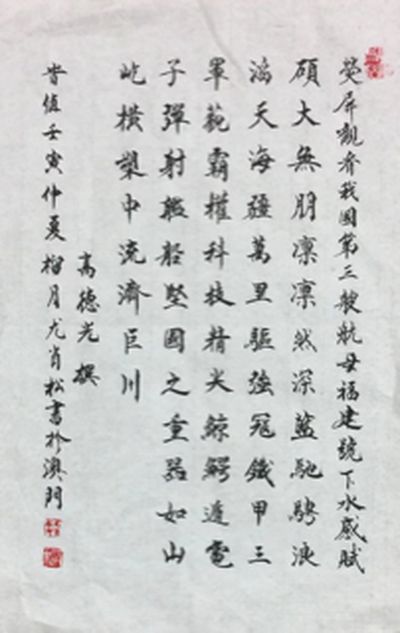 熒屏觀看我國第三艘航母福建號下水感賦
碩大無朋凛凛然深藍馳騁浪
滔天海疆萬里驅強寇鐵甲三
軍藐霸權科技精尖鯨鰐遁電
子彈射艦船堅國之重器如山
屹橫槊中流濟巨川
高德光撰
旹值壬寅仲夏榴月尤肖松書於澳門